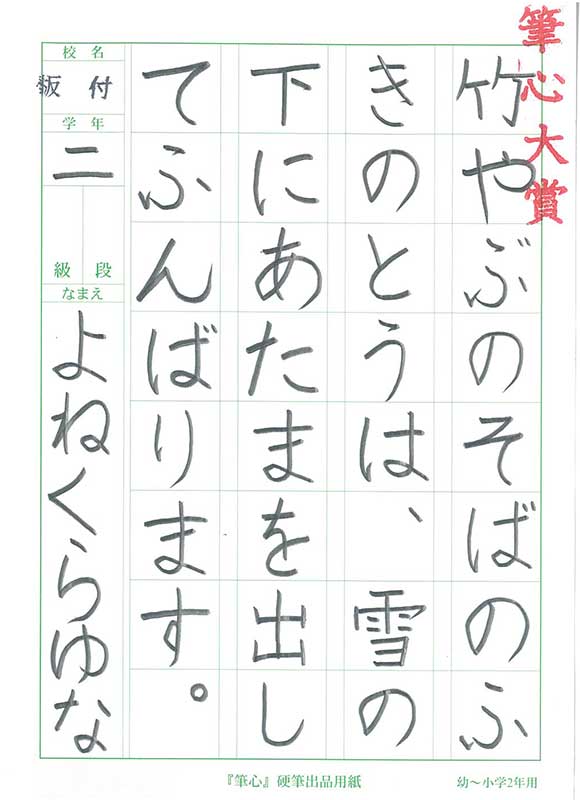 筆心大賞
竹やぶのそばのふ
きのとうは、雪の
下にあたまを出し
てふんばります。
校名
板付
学年
二
級段
なまえ
よねくらゆな
『筆心』硬筆出品用紙
幼〜小学2年用